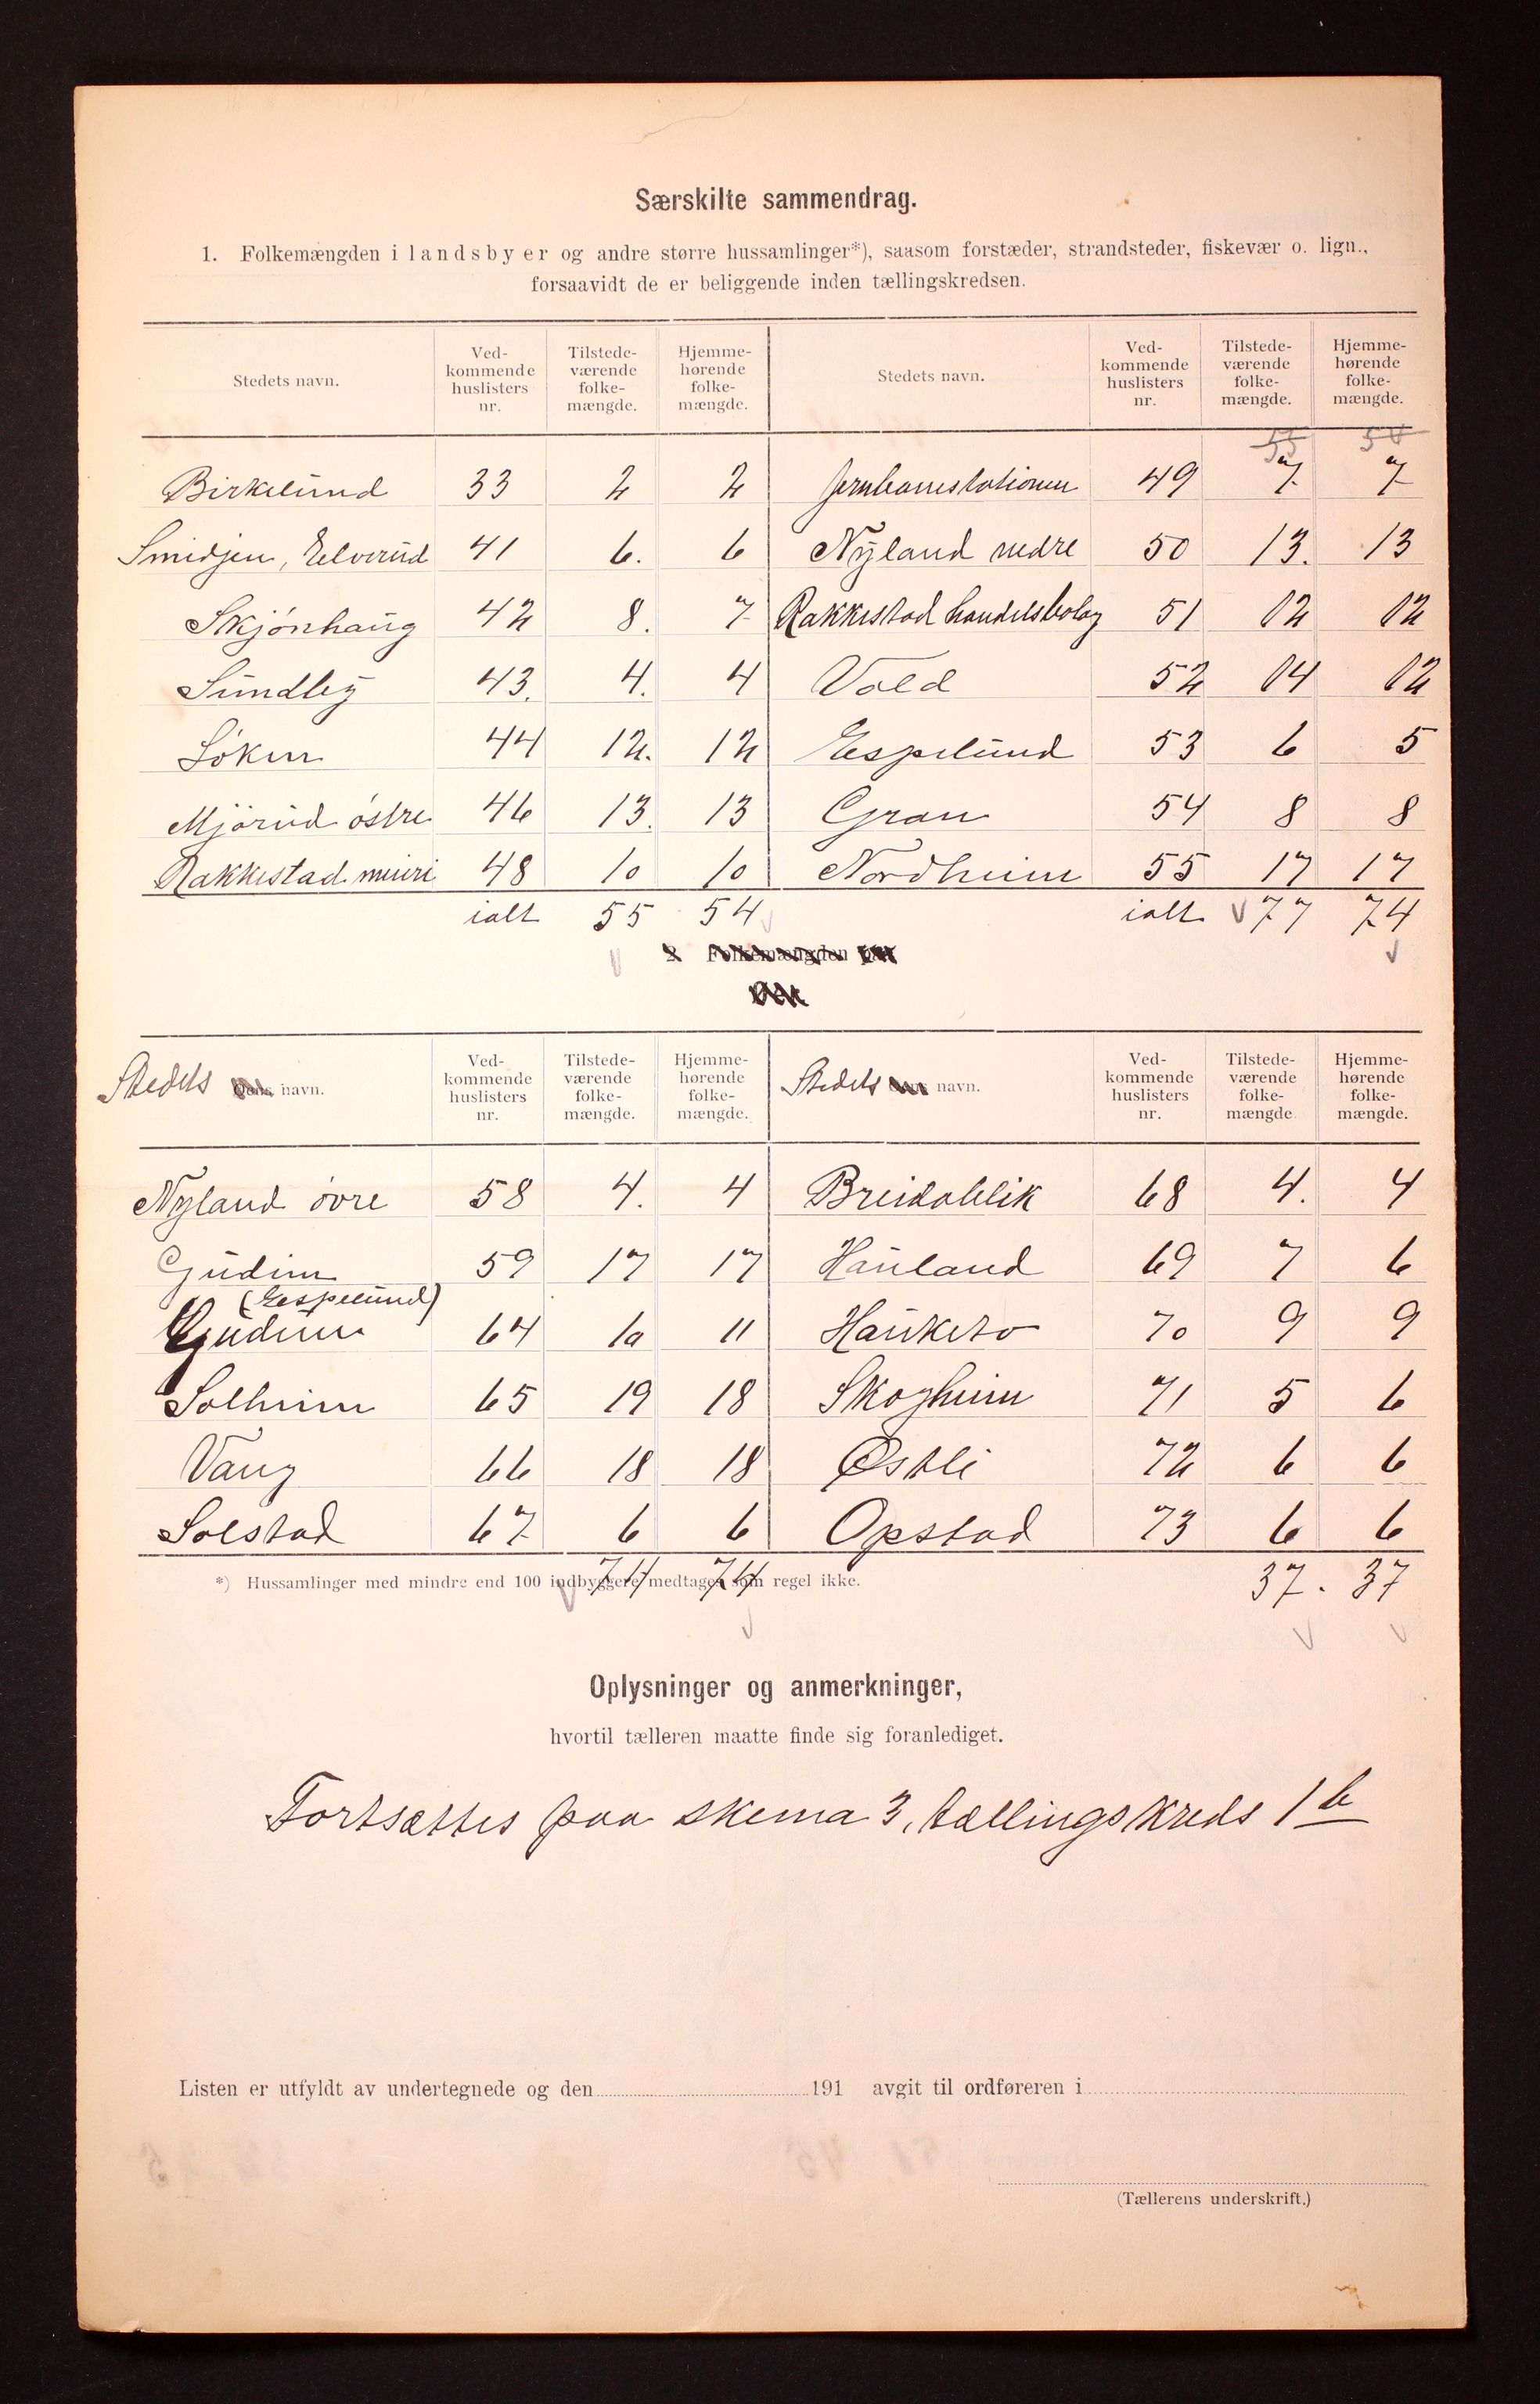 Særskilte sammendrag.
1. Folkemængden i landsbyer og andre større hussamlinger*), saasom forstæder, strandsteder, fiskevær o. lign.,
forsaavidt de er beliggende inden tællingskredsen.
Stedets navn. Ved-kommende huslisters nr. Tilstede-værende folke-mængde. Hjemme-hørende folke-mængde. Stedets navn. Ved-kommende huslisters nr. Tilstede-værende folke-mængde. Hjemme-hørende folke-mængde.
55 54
Birkelund 33 2 2 Jernbanestationen 49 7 7
Smidjen, Elverud 41 6. 6 Nyland nedre 50 13. 13
Skjönhaug 42 8. 7 Rakkestad handelsbolag 51 12 12
Sundby 43. 4. 4 Vold 52 14 12
Löken 44 12. 12 Espelund 53 6 5
Mjörud östre 46 13. 13 Gran 54 8 8
Rakkestad meieri 48 10 10 Nordheim 55 17 17
ialt 55 54 ialt 77 74
2. Folkemængden paa
Stedets navn. Ved-kommende huslisters nr. Tilstede-værende folke-mængde. Hjemme-hørende folke-mængde. Stedets navn. Ved-kommende huslisters nr. Tilstede-værende folke-mængde Hjemme-hørende folke-mængde.
Nyland övre 58 4. 4 Breidablik 68 4. 4
Gudim 59 17 17 Hauland 69 7 6
(Espelund)
Gudim 64 10 11 Hauketo 70 9 9
Solheim 65 19 18 Skogheim 71 5 6
Vang 66 18 18 Østli 72 6 6
Solstad 67 6 6 Opstad 73 6 6
74 74 37. 37
*) Hussamlinger med mindre end 100 indbyggere medtages som regel ikke.
Oplysninger og anmerkninger,
hvortil tælleren maatte finde sig foranlediget.
Fortsættes paa skema 3, tællingskreds 1 b
Listen er utfyldt av undertegnede og den 191 avgit til ordføreren i
(Tællerens underskrift.)